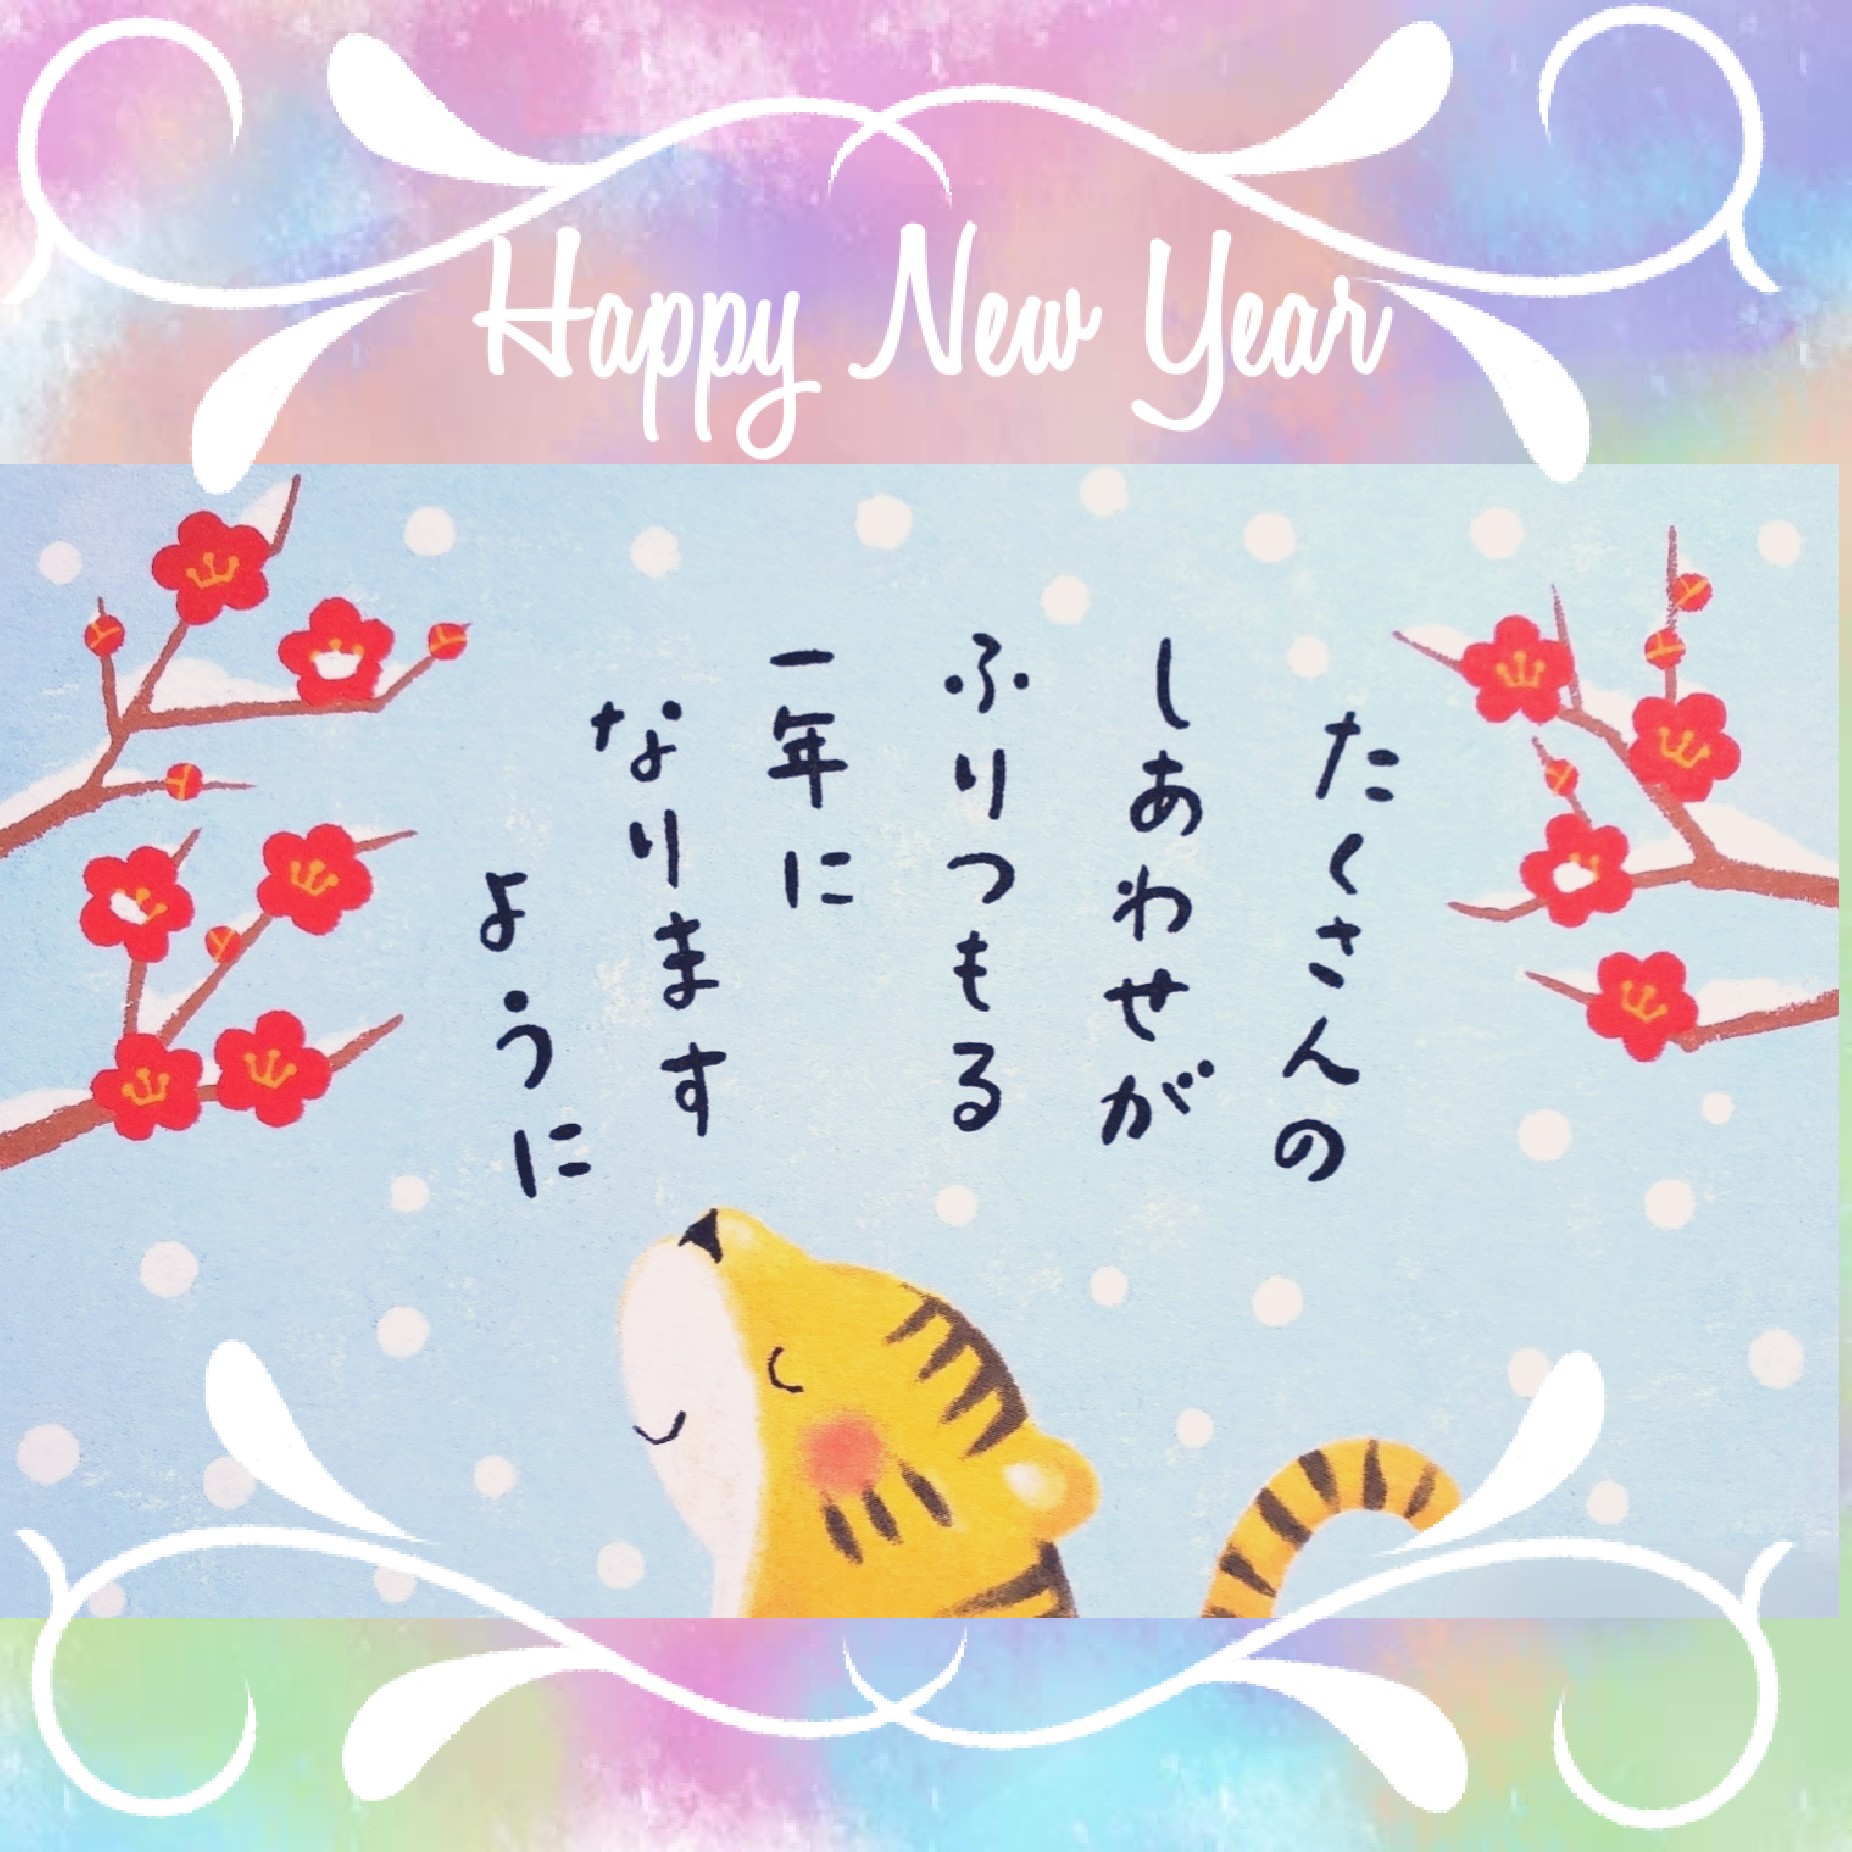 Happy New Year
たくさんの
しあわせが
ふりつもる
一年に
なります
ように